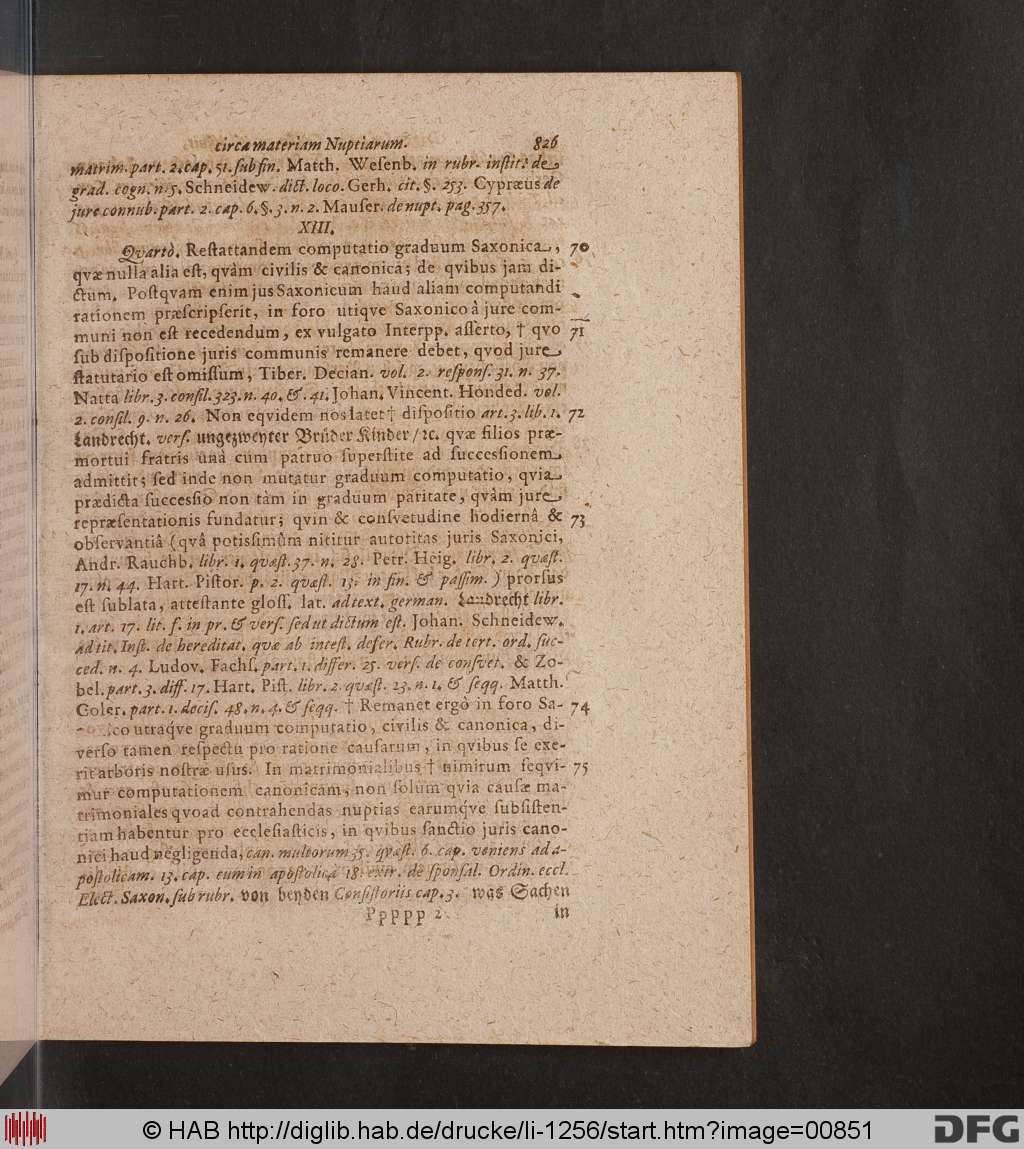 circa materiam Nuptiarum. 826
matrim. part. 2. cap. 51. sub fin. Matth. Wesenb. in rubr. instit. de
grad. cogn. n. 5. Schneidew. dict. loco. Gerh. cit. §. 253. Cypræus de
jure connub. part. 2. cap. 6. §. 3. n. 2. Mauser. de nupt. pag. 357.
XIII.
Qvartò. Restat tandem computatio graduum Saxonica, 70
qvæ nulla alia est, qvàm civilis & canonica; de qvibus jam di-
ctum. Postqvam enim jus Saxonicum haud aliam computandi
rationem præscripserit, in foro utiqve Saxonico â jure com-
muni non est recedendum, ex vulgato Interpp. asserto, † qvo 71
sub dispositione juris communis remanere debet, qvod jure
statutario est omissum, Tiber. Decian. vol. 2. respons. 31. n. 37.
Natta libr. 3. consil. 323. n. 40. &. 41. Johan. Vincent. Honded. vol.
2. consil. 9. n. 26. Non eqvidem nos latet † dispositio art. 3. lib. 1. 72
Landrecht. vers. ungezweyter Brüder Kinder / ꝛc. qvæ filios præ-
mortui fratris unà cum patruo superstite ad successionem
admittit; sed inde non mutatur graduum computatio, qvia
prædicta successio non tàm in graduum paritate, qvàm jure
repræsentationis fundatur; qvin & consvetudine hodiernâ & 73
observantiâ (qvâ potissimùm nititur autoritas juris Saxonici,
Andr. Rauchb. libr. 1. qvæst. 37. n. 28. Petr. Heig. libr. 2. qvæst.
17. n. 44. Hart. Pistor. p. 2. qvæst. 13. in fin. & passim.) prorsus
est sublata, attestante gloss. lat. ad text. german. Landrecht libr.
1. art. 17. lit. f. in pr. & vers. sed ut dictum est. Johan. Schneidew.
ad tit. Inst. de hereditat. qvæ ab intest. defer. Rubr. de tert. ord. suc-
ced. n. 4. Ludov. Fachs. part. 1. differ. 25. vers. de consvet. & Zo-
bel. part. 3. diff. 17. Hart. Pist. libr. 2. qvæst. 23. n. 1. & seqq. Matth.
Coler. part. 1. decis. 48. n. 4. & seqq. † Remanet ergò in foro Sa- 74
xonico utraqve graduum computatio, civilis & canonica, di-
verso tamen respectu pro ratione causarum, in qvibus se exe-
rit arboris nostræ usus. In matrimonialibus † nimirum seqvi- 75
mur computationem canonicam, non solùm qvia causæ ma-
trimoniales qvoad contrahendas nuptias earumqve subsisten-
tiam habentur pro ecclesiasticis, in qvibus sanctio juris cano-
nici haud negligenda, can. multorum 35. qvæst. 6. cap. veniens ad a-
postolicam. 13. cap. eum in apostolica 18. extr. de sponsal. Ordin. eccl.
Elect. Saxon. sub rubr. von beyden Consistoriis cap. 3. was Sachen
Ppppp 2 in
© HAB http://diglib.hab.de/drucke/li-1256/start.htm?image=00851
DFG